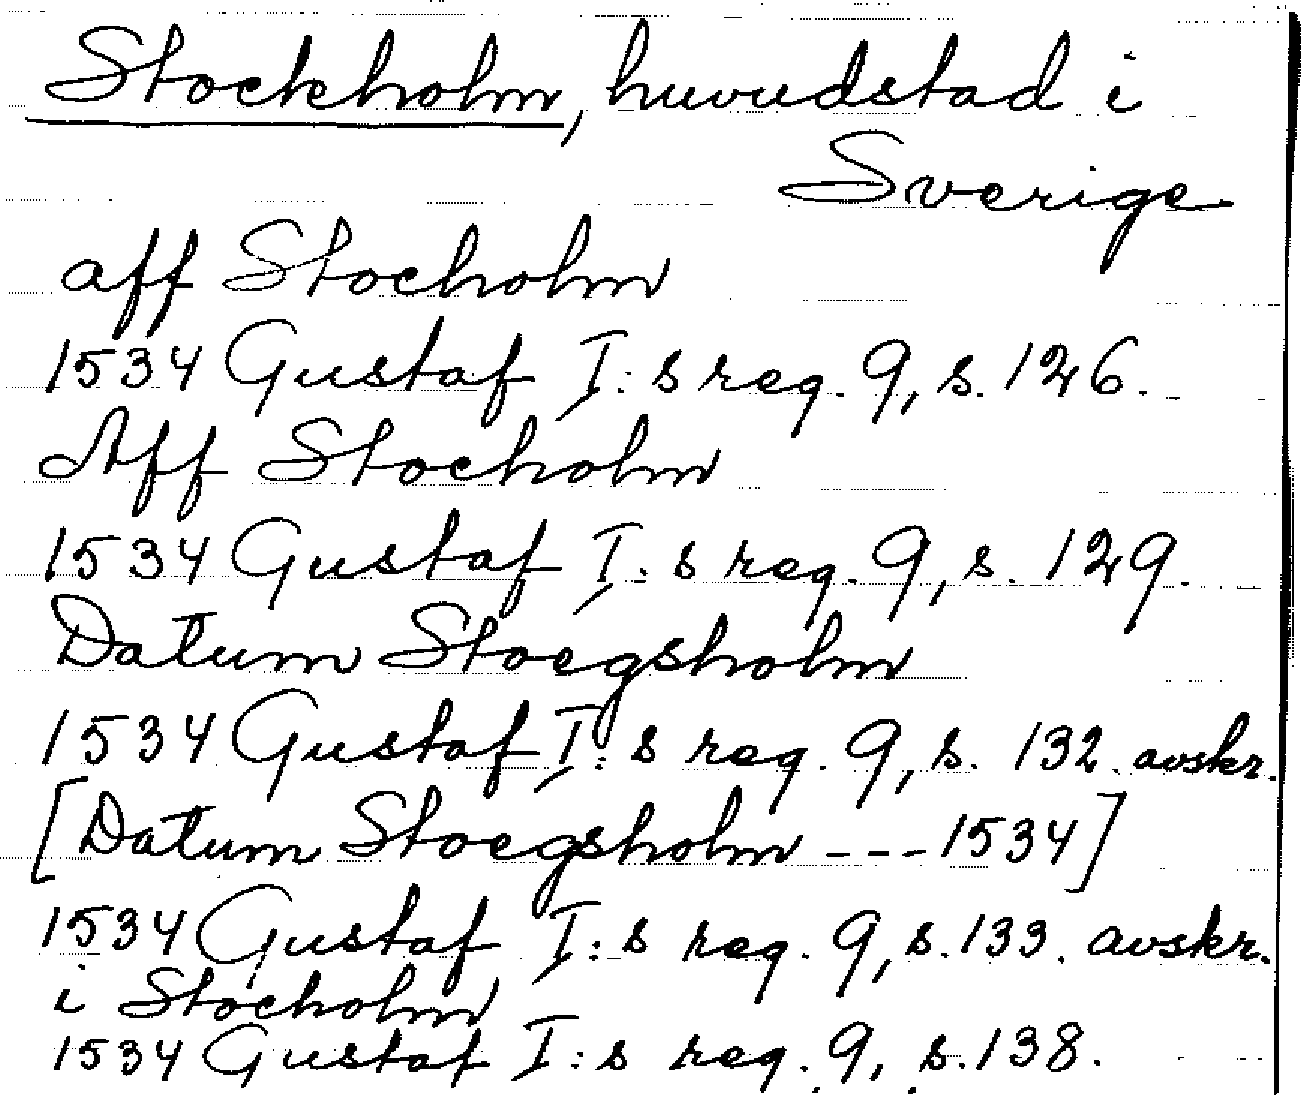 Stockholm, huvudstad i
Sverige
aff Stocholm
1534 Gustaf I:s reg. 9, s. 126.
Aff Stocholm
1534 Gustaf I:s reg. 9, s. 129.
Datum Stocgsholm
1534 Gustaf I:s reg. 9, s. 132. avskr.
[Datum Stocgsholm --- 1534]
1534 Gustaf I:s reg. 9, s. 133. avskr.
i Stocholm
1534 Gustaf I:s reg. 9, s. 138.